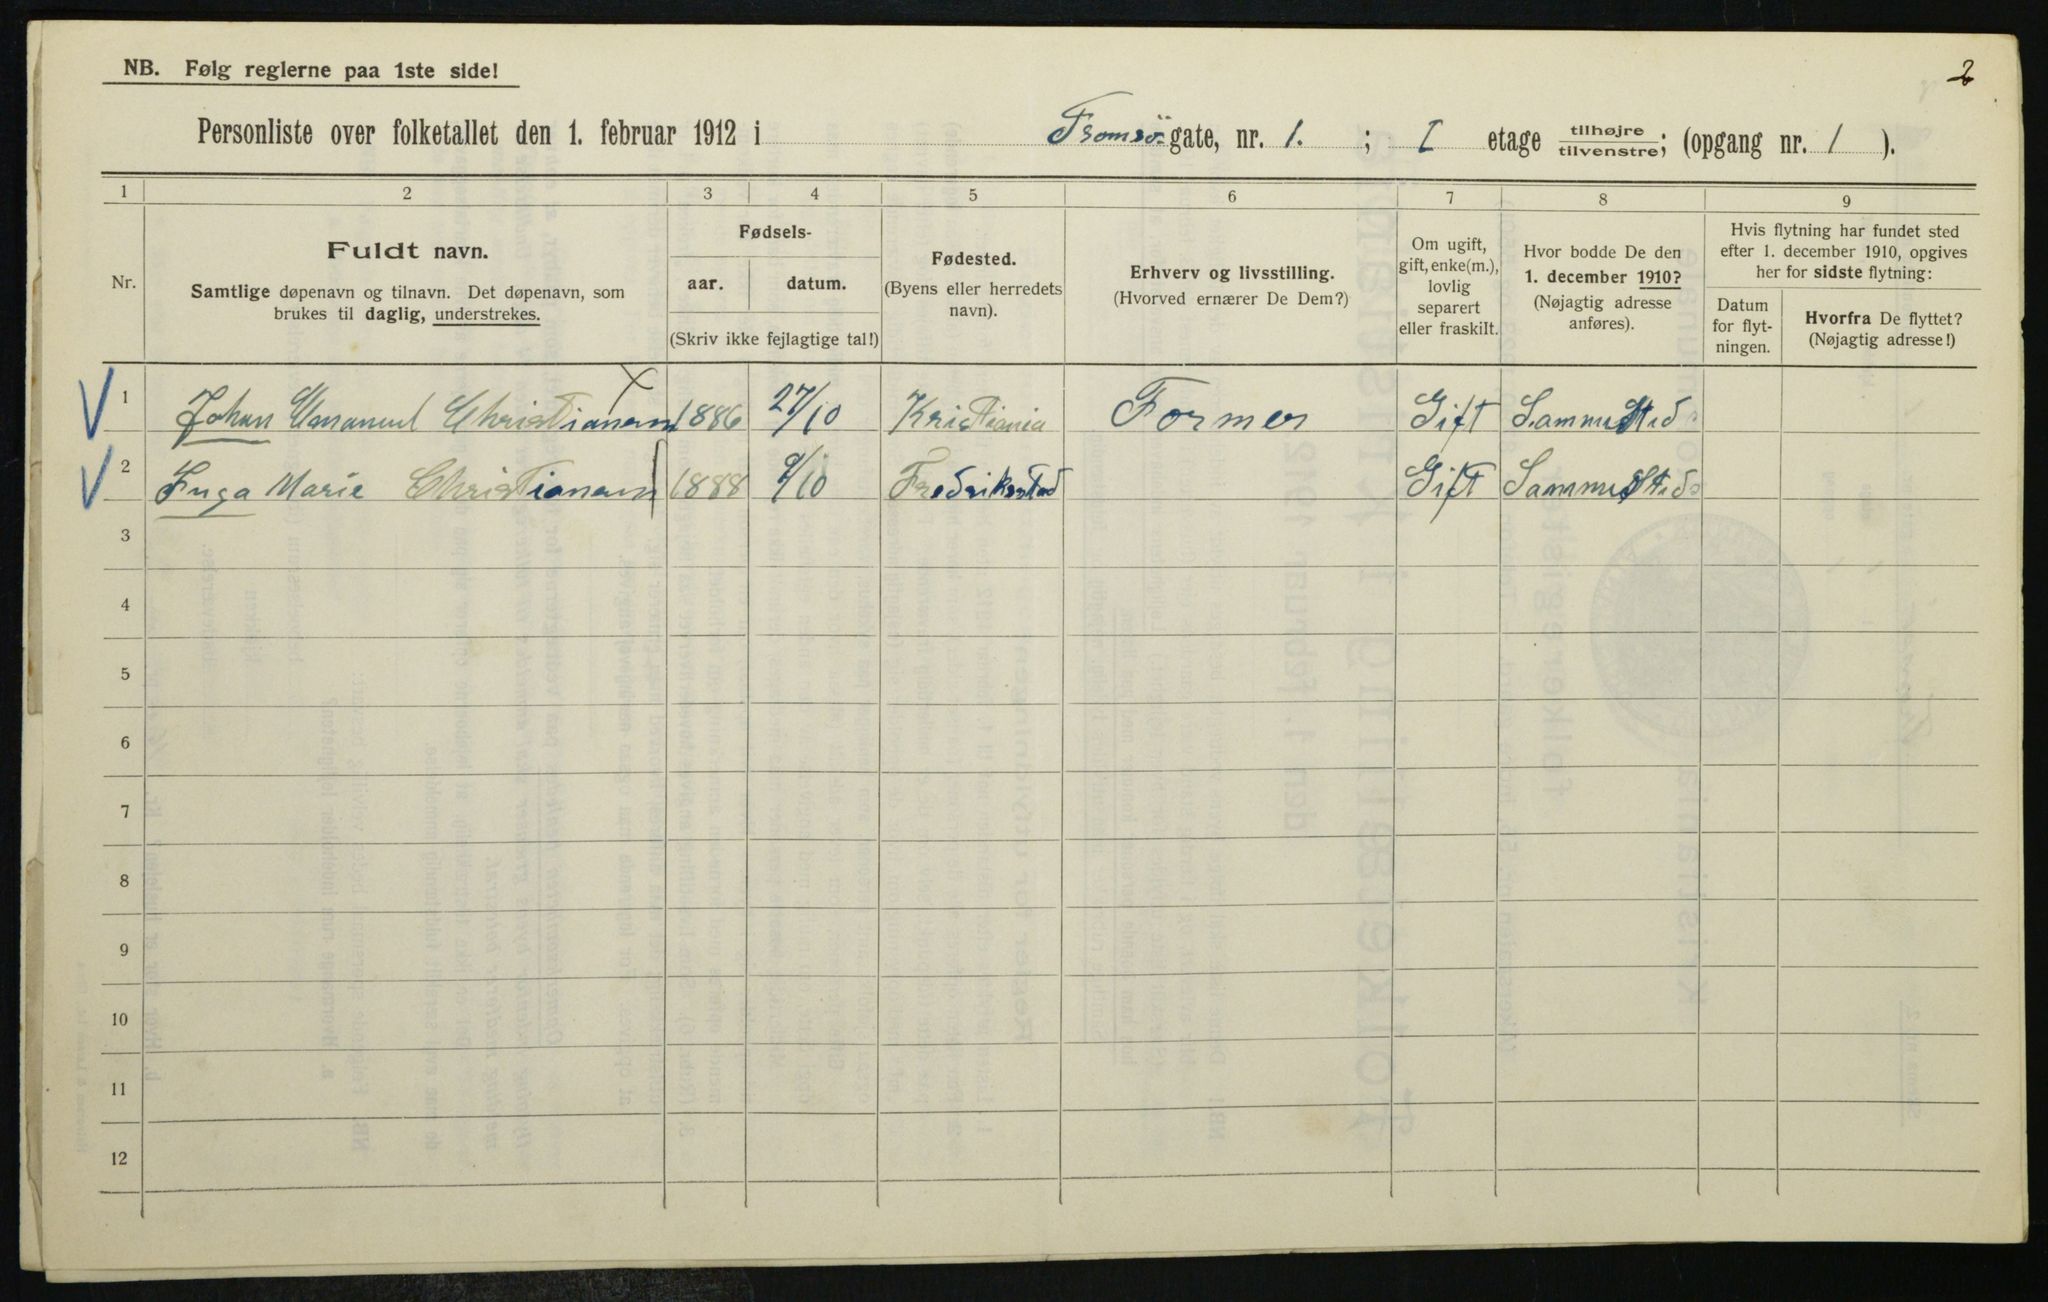 2
NB. Følg reglerne paa 1ste side!
Personliste over folketallet den 1. februar 1912 i Tromsö gate, nr. 1. ; I etage tilhøjre/tilvenstre; (opgang nr. 1 ).
1 2 3 4 5 6 7 8 9
Nr.
Fuldt navn.
Samtlige døpenavn og tilnavn. Det døpenavn, som
brukes til daglig, understrekes.
Fødsels-
aar. datum.
(Skriv ikke fejlagtige tal!)
Fødested.
(Byens eller herredets
navn).
Erhverv og livsstilling.
(Hvorved ernærer De Dem?)
Om ugift,
gift, enke(m.),
lovlig
separert
eller fraskilt.
Hvor bodde De den
1. december 1910?
(Nøjagtig adresse
anføres).
Hvis flytning har fundet sted
efter 1. december 1910, opgives
her for sidste flytning:
Datum
for flyt-
ningen.
Hvorfra De flyttet?
(Nøjagtig adresse!)
1 Johan Emanuel Christiansen 1886 27/10 Kristiania Former Gift Samme Sted
2 Inga Marie Christiansen 1888 9/10 Fredrikstad Gift Samme Sted
3
4
5
6
7
8
9
10
11
12